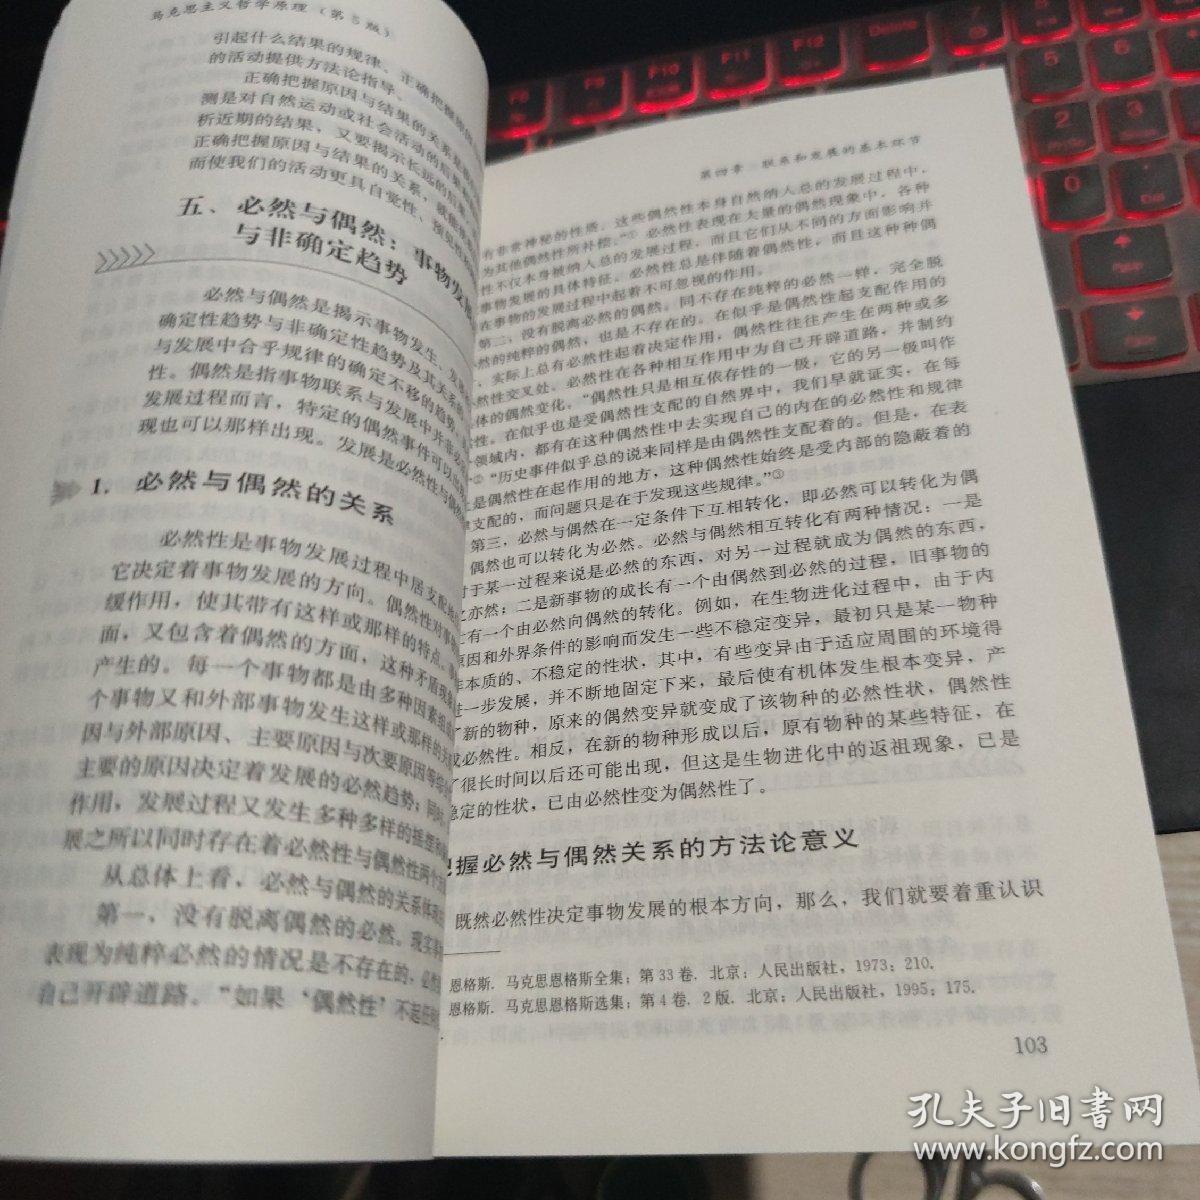 马克思主义哲学原理（第5版）
引起什么结果的规律、正确把握
的活动提供方法论指导、
正确把握原因与结果的关系
测是对自然运动或社会活动的后果
析近期的结果，又要揭示长远的
正确把握原因与结果的关系，
而使我们的活动更具自觉性、
五、必然与偶然：事物发
与非确定趋势
必然与偶然是揭示事物发生、发展
确定性趋势与非确定性趋势及其关系
与发展中合乎规律的确定不移的趋势，
性。偶然是指事物联系与发展中并非必
发展过程而言，特定的偶然事件可以
现也可以那样出现。发展是必然性与偶然
1. 必然与偶然的关系
必然性是事物发展过程中居支配地
它决定着事物发展的方向。偶然性对事
缓作用，使其带有这样或那样的特点。
面，又包含着偶然的方面，这种矛盾现
产生的。每一个事物都是由多种因素组
个事物又和外部事物发生这样或那样的
因与外部原因、主要原因与次要原因等
主要的原因决定着发展的必然趋势；同时，
作用，发展过程又发生多种多样的摇摆和
展之所以同时存在着必然性与偶然性两个
从总体上看，必然与偶然的关系体现
第一，没有脱离偶然的必然。现实事
表现为纯粹必然的情况是不存在的，必然
自己开辟道路。“如果‘偶然性’不起任何
第四章 联系和发展的基本环节
有非常神秘的性质，这些偶然性本身自然纳入总的发展过程中，
为其他偶然性所补偿。”① 必然性表现在大量的偶然现象中，各种
性不仅本身被纳入总的发展过程，而且它们从不同的方面影响并
事物发展的具体特征。必然性总是伴随着偶然性，而且这种种偶
在事物的发展过程中起着不可忽视的作用。
第二，没有脱离必然的偶然。同不存在纯粹的必然一样，完全脱
然的纯粹的偶然，也是不存在的。在似乎是偶然性起支配作用的
，实际上总有必然性起着决定作用，偶然性往往产生在两种或多
然性交叉处。必然性在各种相互作用中为自己开辟道路，并制约
体的偶然变化。“偶然性只是相互依存性的一极，它的另一极叫作
然性。在似乎也是受偶然性支配的自然界中，我们早就证实，在每
领域内，都有在这种偶然性中去实现自己的内在的必然性和规律
② “历史事件似乎总的说来同样是由偶然性支配着的。但是，在表
上是偶然性在起作用的地方，这种偶然性始终是受内部的隐蔽着的
律支配的，而问题只是在于发现这些规律。”③
第三，必然与偶然在一定条件下互相转化，即必然可以转化为偶
偶然也可以转化为必然。必然与偶然相互转化有两种情况：一是
对于某一过程来说是必然的东西，对另一过程就成为偶然的东西，
之亦然；二是新事物的成长有一个由偶然到必然的过程，旧事物的
亡有一个由必然向偶然的转化。例如，在生物进化过程中，由于内
原因和外界条件的影响而发生一些不稳定变异，最初只是某一物种
非本质的、不稳定的性状，其中，有些变异由于适应周围的环境得
进一步发展，并不断地固定下来，最后使有机体发生根本变异，产
了新的物种，原来的偶然变异就变成了该物种的必然性状，偶然性
成必然性。相反，在新的物种形成以后，原有物种的某些特征，在
了很长时间以后还可能出现，但这是生物进化中的返祖现象，已是
稳定的性状，已由必然性变为偶然性了。
把握必然与偶然关系的方法论意义
既然必然性决定事物发展的根本方向，那么，我们就要着重认识
恩格斯. 马克思恩格斯全集：第33卷. 北京：人民出版社，1973：210.
恩格斯. 马克思恩格斯选集：第4卷. 2版. 北京：人民出版社，1995：175.
103
F9
F10
F11
F12
Delete
5
6
2
3
PgUp
PgDn
孔夫子旧书网
www.kongfz.com